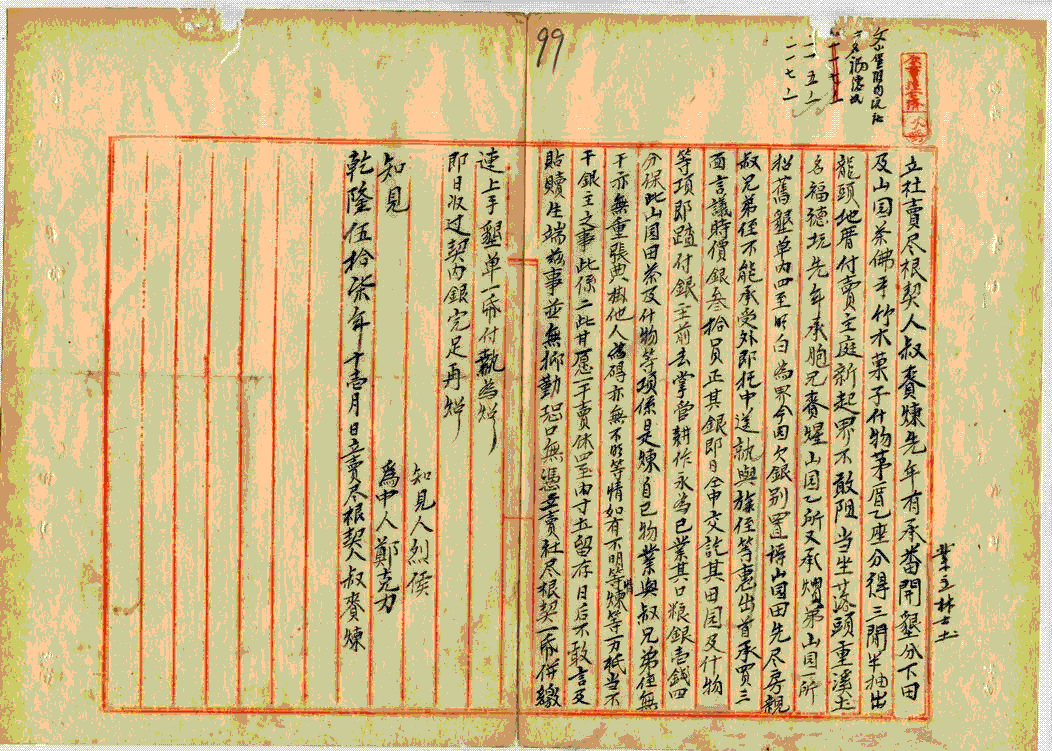 99
立社賣尽根契人叔賚煉先年有承番開墾分下田
及山园茶佛手竹木菓子什物茅厝乙座分得三間半抽出
龍頭地厝付賣主庭新起界不敢阻当坐落頭重溪土
名福德坑先年承胞兄賚煋山园乙所又承弟山园一所
招舊墾单內四至明白為界今因欠銀別置将山园田先尽房親
叔兄弟侄不能承受外即托中送就與族侄等惠出首承買三
面言議時價銀叁拾員正其銀即日仝中交訖其田园及什物
等項即踏付銀主前去掌管耕作永為己業其口粮銀壹錢四
分保此山园田茶及什物等項係是煉自己物業與叔兄弟侄無
干亦無重張典掛他人為碍亦無不明等情如有不明等情煉等一力抵当不
干銀主之事此係二比甘愿一千賣休四至內寸土留存日后不敢言及
貼贖生端茲事並無抑勒恐口無憑立賣社尽根契一帋併繳
連上手墾单一帋付執為炤
即日收过契內銀完足再炤
知見人烈侯
知見
為中人鄭克力
乾隆伍拾柒年十壹月日立賣尽根契人叔賚煉
業主林士土